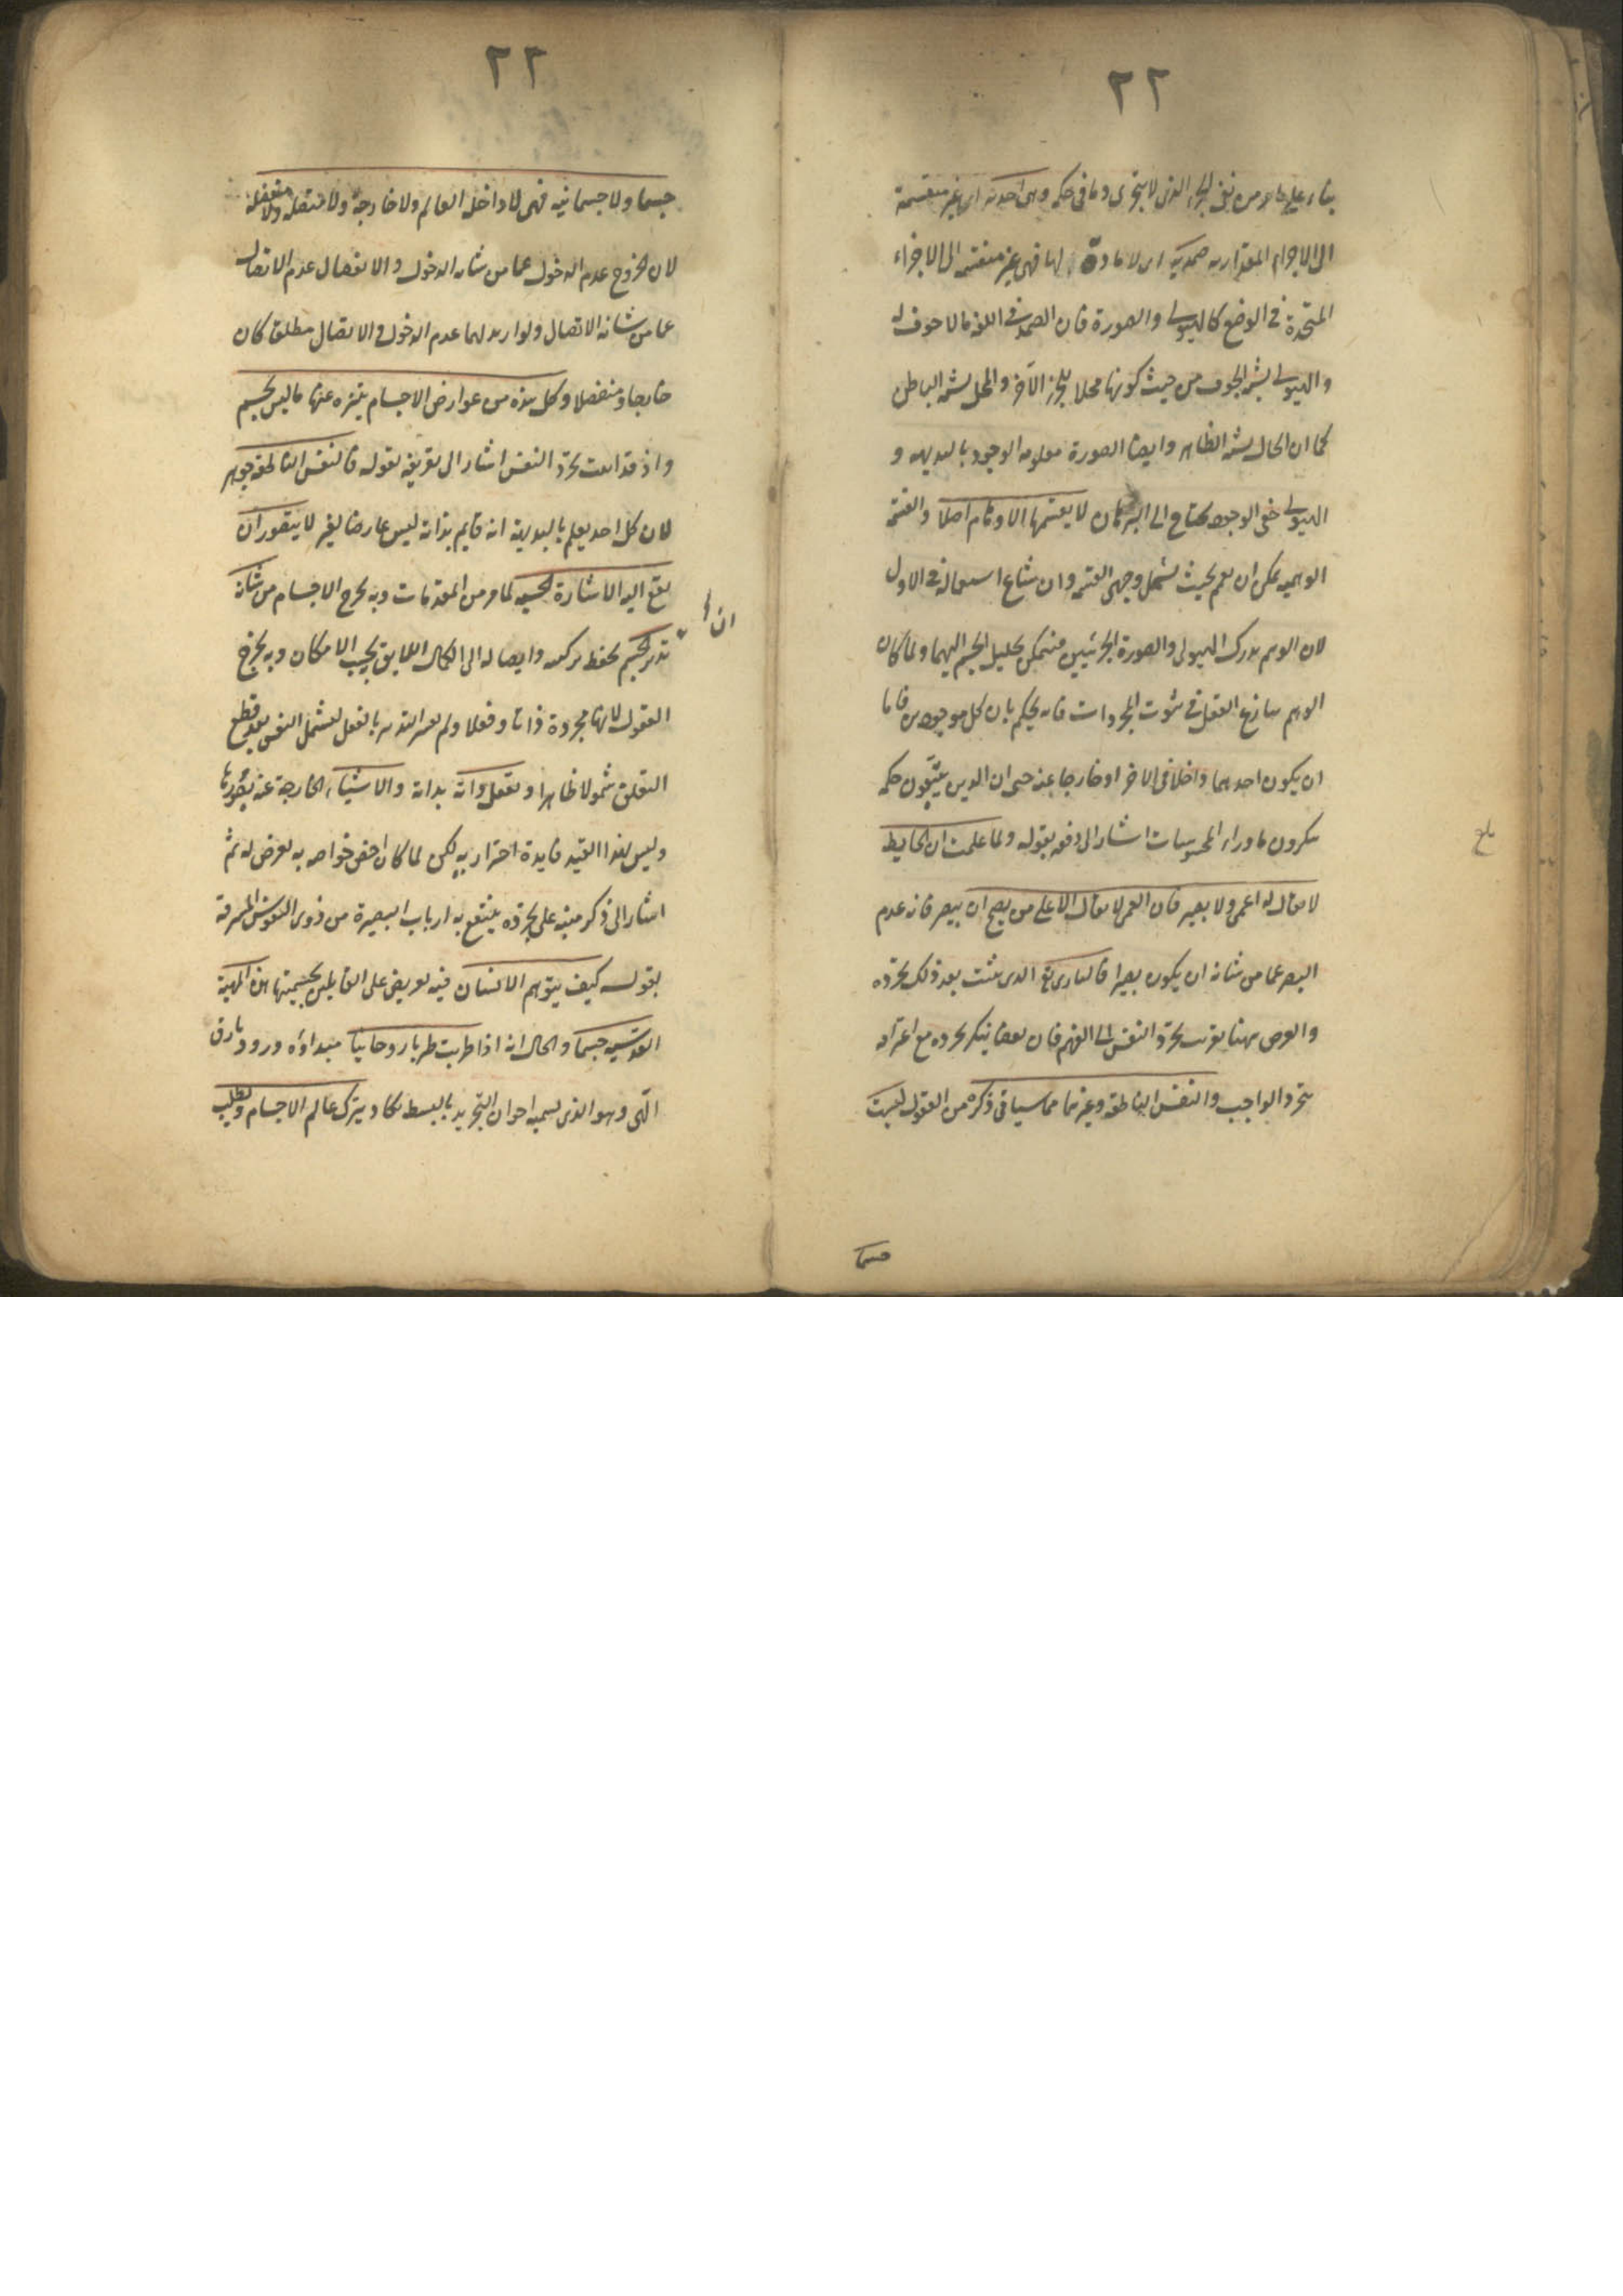 ٢٢
بناء على ما مر من نفى الجزء الذى لا يتجزى وما فى حكمه وهى احدية اى غير منقسمة
الى الاجزاء المقدارية صمدية اى لا مادة لها فهى غير منقسمة الى الاجزاء
المتحدة فى الوضع كالهيولى والصورة فان الصمد فى اللغة ما لا جوف له
والهيولى يشبه الجوف من حيث كونها محلا للجزء الآخر والمحل يشبه الباطن
كما ان الحال يشبه الظاهر وايضا الصورة معلومة الوجود بالبديهة و
الهيولى خفى الوجود يحتاج الى البرهان لا يقسمها الاوهام اصلا والقسمة
الوهمية يمكن ان يعم بحيث يشمل وجهى القسمة وان شاع استعماله فى الاول
لان الوهم يدرك الهيولى والصورة الجزئيين فيتمكن بتحليل الجسم اليهما ولما كان
الوهم ينازع العقل فى ثبوت المجردات فانه يحكم بان كل موجودين فاما
ان يكون احدهما داخلا فى الآخر او خارجا عنه حتى ان الذين يتبعون حكمه
ينكرون ما وراء المحسوسات اشار الى دفعه بقوله ولما علمت ان الحايط
لا يقال له اعمى ولا بصير فان العمى لا يقال الا على من يصح ان يبصر فانه عدم
البصر عما من شانه ان يكون بصيرا فالبارى تع الذى يثبت بعد ذلك تجرده
والغرض ههنا تقريب تجرد النفس الى الفهم فان بعضا ينكر تجرده مع اعترافه
بتجرد الواجب والنفس الناطقة وغيرهما مما سياتى ذكره من العقول ليست
جسما
بلغ
٢٢
جسما ولا جسمانية فهى لا داخلة العالم ولا خارجة ولا متصلة ولا منفصلة
لان الخروج عدم الدخول عما من شانه الدخول والانفصال عدم الاتصال
عما من شانه الاتصال ولو اريد لهما عدم الدخول والاتصال مطلقا كان
خارجا ومنفصلا وكل هذه من عوارض الاجسام يتنزه عنها ما ليس بجسم
واذ قد اثبت تجرد النفس اشار الى تعريفه بقوله فالنفس الناطقة جوهر
لان كل احد يعلم بالبديهة انه قايم بذاته ليس عارضا لغيره لا يتصور ان
يقع اليه الاشارة الحسية لما مر من المقدمات وبه يخرج الاجسام من شانه
ان
تدبر الجسم بحفظ تركيبه وايصاله الى الكمال اللايق بحسب الامكان وبه يخرج
العقول لانها مجردة ذاتا وفعلا ولم يعتبر التدبير بالفعل ليشمل النفس بعد قطع
التعلق شمولا ظاهرا وتعقل ذاته بذاته والاشياء الخارجة عنه بصورها
وليس لهذا القيد فايدة احترازية لكن لما كان اخص خواصه به تعرض له ثم
اشار الى ذكر منبه على تجرده ينتفع به ارباب البصيرة من ذوى النفوس المشرقة
بقوله كيف يتوهم الانسان فيه تعريض على القايلين بجسميتها هذه المهية
القدسية جسما والحال انه اذا طربت طربا روحانيا مبداؤه ورود بارق
الهى وهو الذى يسميه اخوان التجريد بالبسط يكاد يترك عالم الاجسام ويطلب